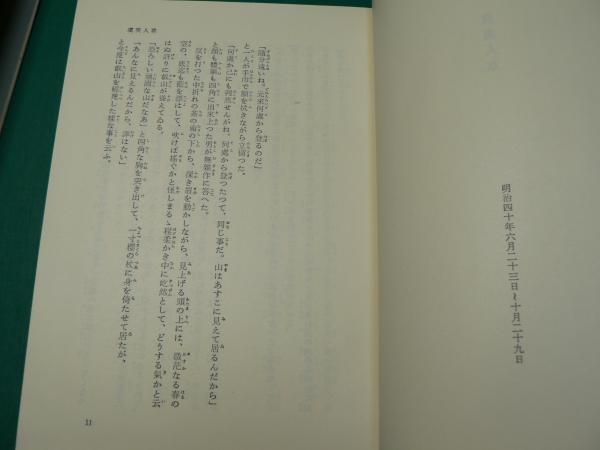 明治四十年六月二十三日―十月二十九日
虞美人草
「隨分遠いね。元來何處から登るのだ」
と一人が手巾で額を拭きながら立留つた。
「何處か己にも判然せんがね。何處から登つたつて、同じ事だ。山はあすこに見えて居るんだから」
と顏も體軀も四角に出來上つた男が無雜作に答へた。
反を打つた中折れの茶の廂の下から、深き眉を動かしながら、見上げる頭の上には、微茫なる春の
空の、底迄も藍を漂はして、吹けば搖くかと怪しまるゝ程柔かき中に屹然として、どうする氣かと云
はぬ許りに叡山が聳えてゐる。
「恐ろしい頑固な山だなあ」と四角な胸を突き出して、一寸櫻の杖に身を倚たせて居たが、
「あんなに見えるんだから、譯はない」
と今度は叡山を輕蔑した樣な事を云ふ。
11